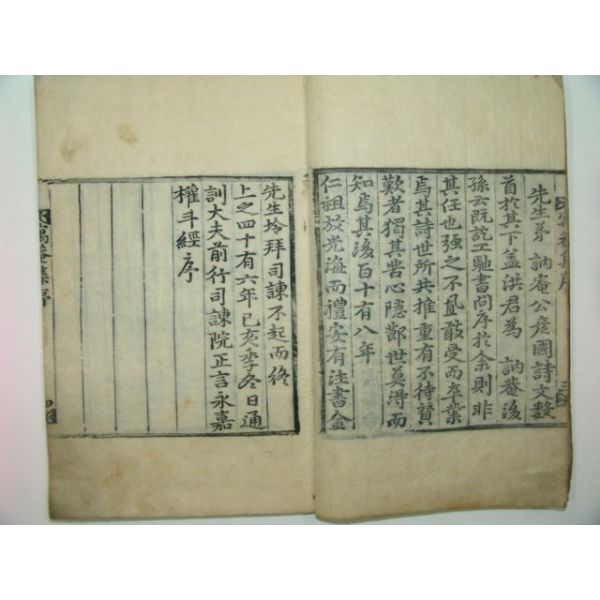 先生弟 訥庵公彦國詩文數
首於其下盖洪君為 訥菴後
孫云既訖工馳書問序於余則非
其任也強之不置敢受而卒業
焉其詩世所共推重有不待賛
歎者獨其苦心隱鄙世莫得而
知焉其後百十有八年
仁祖放光海而禮安有注書金
先生拜司諫不起而終
上之四十有六年己亥季冬日通
訓大夫前行司諫院正言永嘉
權斗經序
寓菴集序